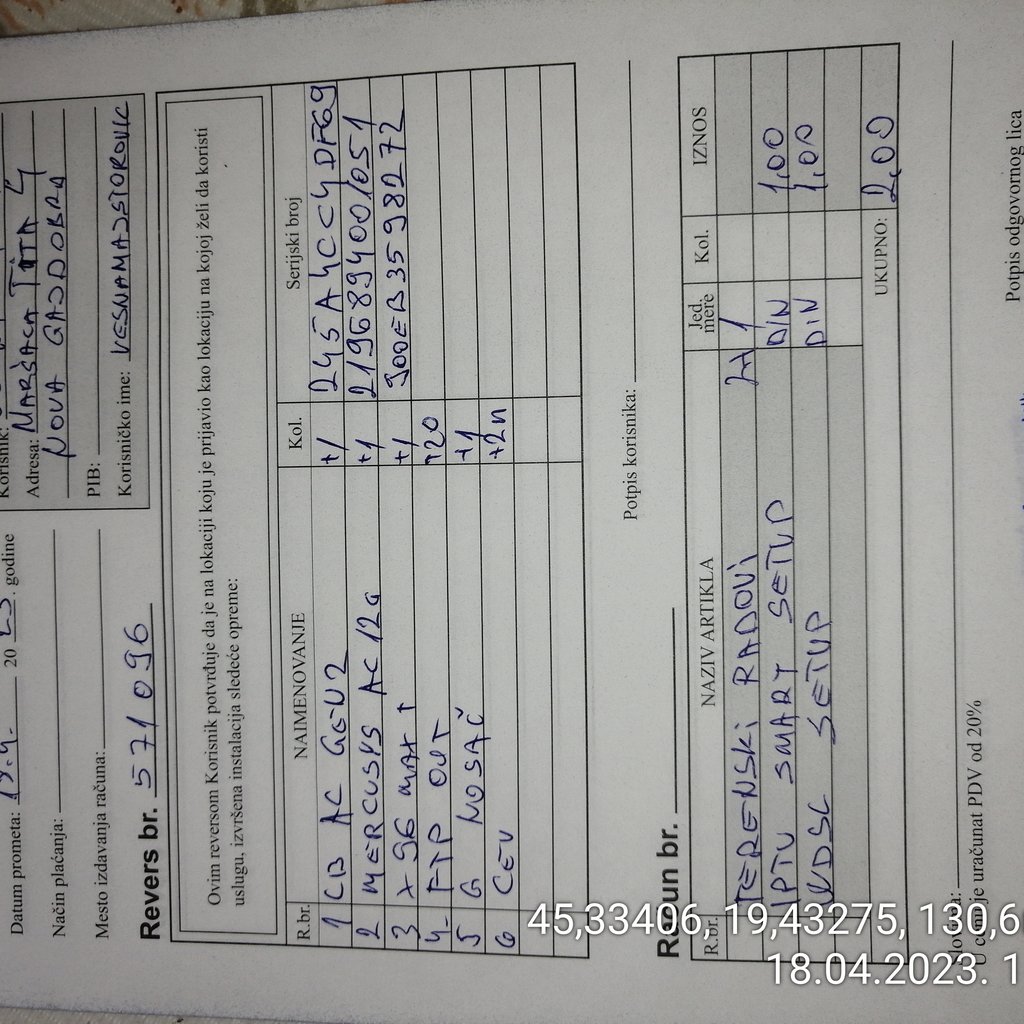 Korisnik:
Adresa: MARŠALA TITA 4
NOVA GAJDOBRA
PIB:
Korisničko ime: VESNAMAJSTOROVIC
Datum prometa: 2023. godine
Način plaćanja:
Mesto izdavanja računa:
Revers br. 571096
Ovim reversom Korisnik potvrđuje da je na lokaciji koju je prijavio kao lokaciju na kojoj želi da koristi
uslugu, izvršena instalacija sledeće opreme:
R.br. NAIMENOVANJE Kol. Serijski broj
1 LB AC GEN2 +1 245A4CC4DF69
2 MERCUSYS AC12G +1 2196894001051
3 X96 MAX + +1 300EB3598272
4. FTP OUT +20
5 G NOSAČ +1
6 CEV +2m
Potpis korisnika:
Račun br.
R.br. NAZIV ARTIKLA Jed. mere Kol. IZNOS
TERENSKI RADOVI 1
IPTV SMART SETUP DIN 1,00
VDSL SETUP DIN 1,00
UKUPNO: 2,00
Slovima:
U cenu je uračunat PDV od 20%
Potpis odgovornog lica
45,33406, 19,43275, 130,6
18.04.2023. 1